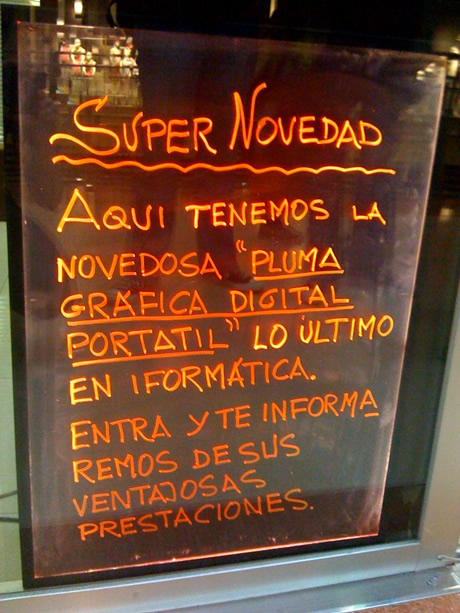 SUPER NOVEDAD
AQUI TENEMOS LA
NOVEDOSA "PLUMA
GRÁFICA DIGITAL
PORTATIL" LO ÚLTIMO
EN IFORMÁTICA.
ENTRA Y TE INFORMA
REMOS DE SUS
VENTAJOSAS
PRESTACIONES.